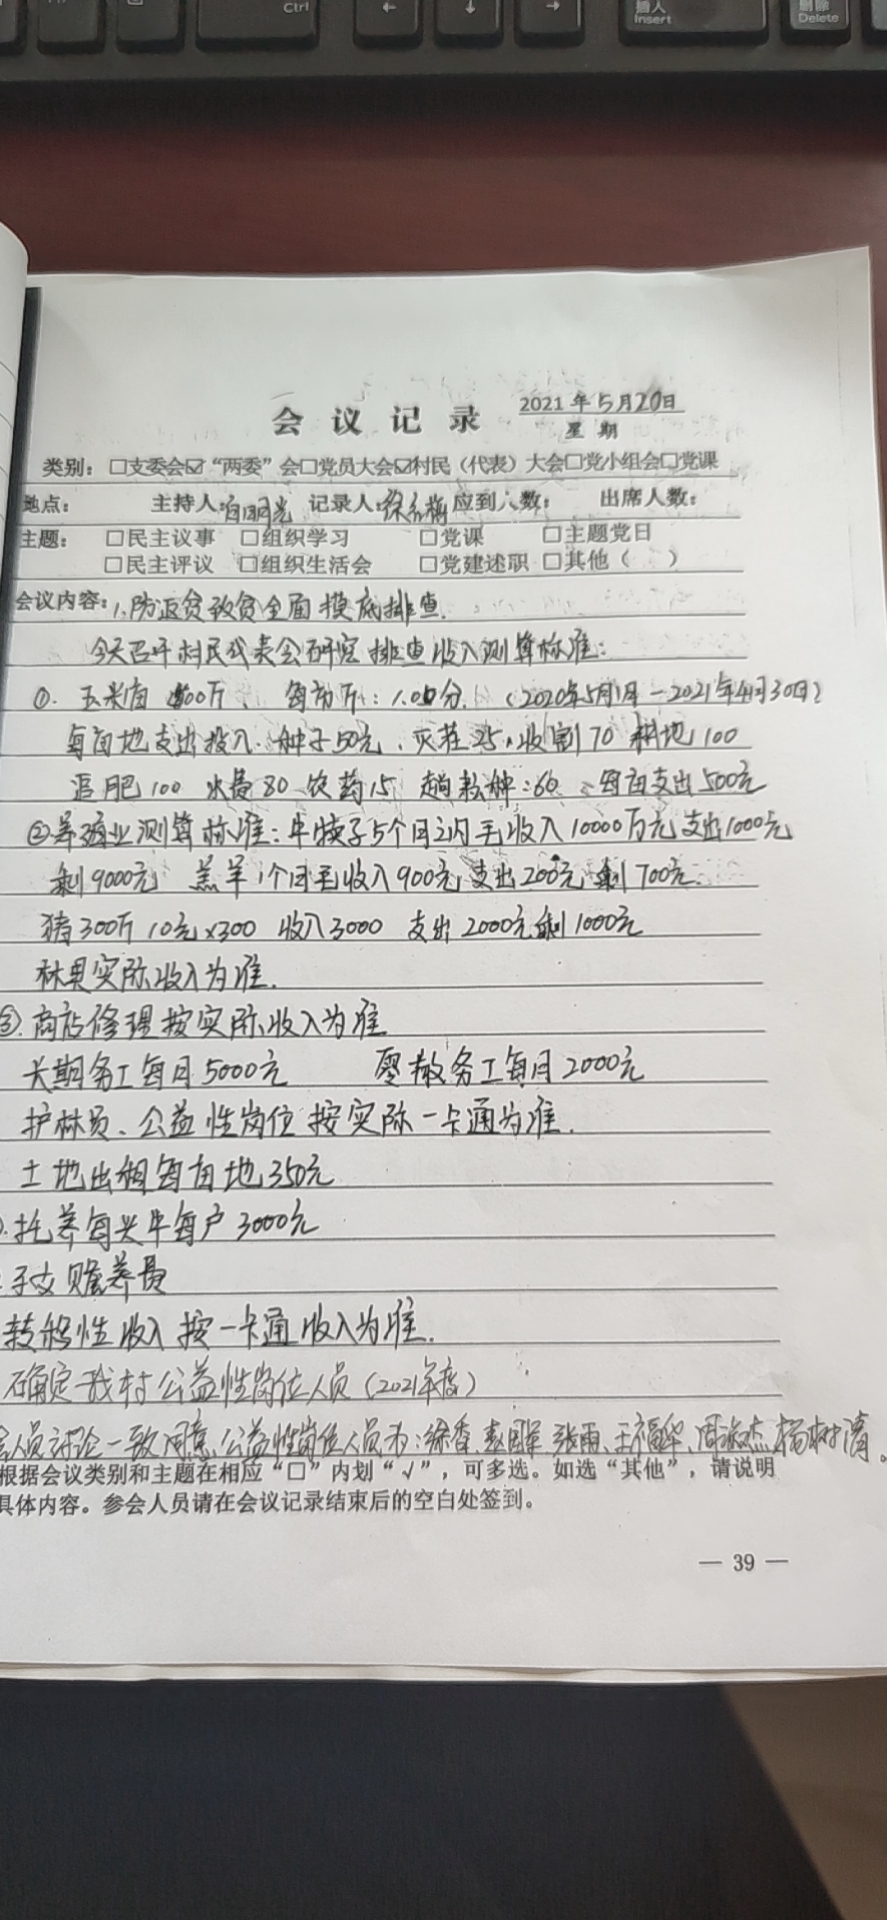 Ctrl
插入
Insert
删除
Delete
会 议 记 录
2021 年 5月20日
星 期
类别：□支委会☑“两委”会□党员大会☑村民（代表）大会□党小组会□党课
地点： 主持人：白明光 记录人：徐 梅 应到人数： 出席人数：
主题： □民主议事 □组织学习 □党课 □主题党日
□民主评议 □组织生活会 □党建述职 □其他（ ）
会议内容：1、防返贫致贫全面摸底排查.
今天召开村民代表会研究排查收入测算标准：
①. 玉米亩 00斤、 每市斤：1.00分. （2020年5月1日－2021年4月30日）
每亩地支出投入. 种子50元、灭茬25，收割70 耕地100
追肥100 水费80 农药15 趟 种：60 每亩支出500元
②养殖业测算标准：牛犊子5个月之内毛收入10000万元支出1000元
剩9000元 羔羊1个月毛收入900元支出200元剩700元.
猪300斤10元×300 收入3000 支出2000元剩1000元
林果实际收入为准.
③. 商店修理按实际收入为准
长期务工每月5000元 零散务工每月2000元
护林员、公益性岗位按实际一卡通为准.
土地出租每亩地350元
.托养每头牛每户3000元
子女赡养费
转移性收入按一卡通收入为准.
确定我村公益性岗位人员（2021年度）
人员讨论一致同意公益性岗位人员为：徐香、 国军、张雨、王福华、周淑杰、杨树清。
根据会议类别和主题在相应“□”内划“√”，可多选。如选“其他”，请说明
具体内容。参会人员请在会议记录结束后的空白处签到。
— 39 —